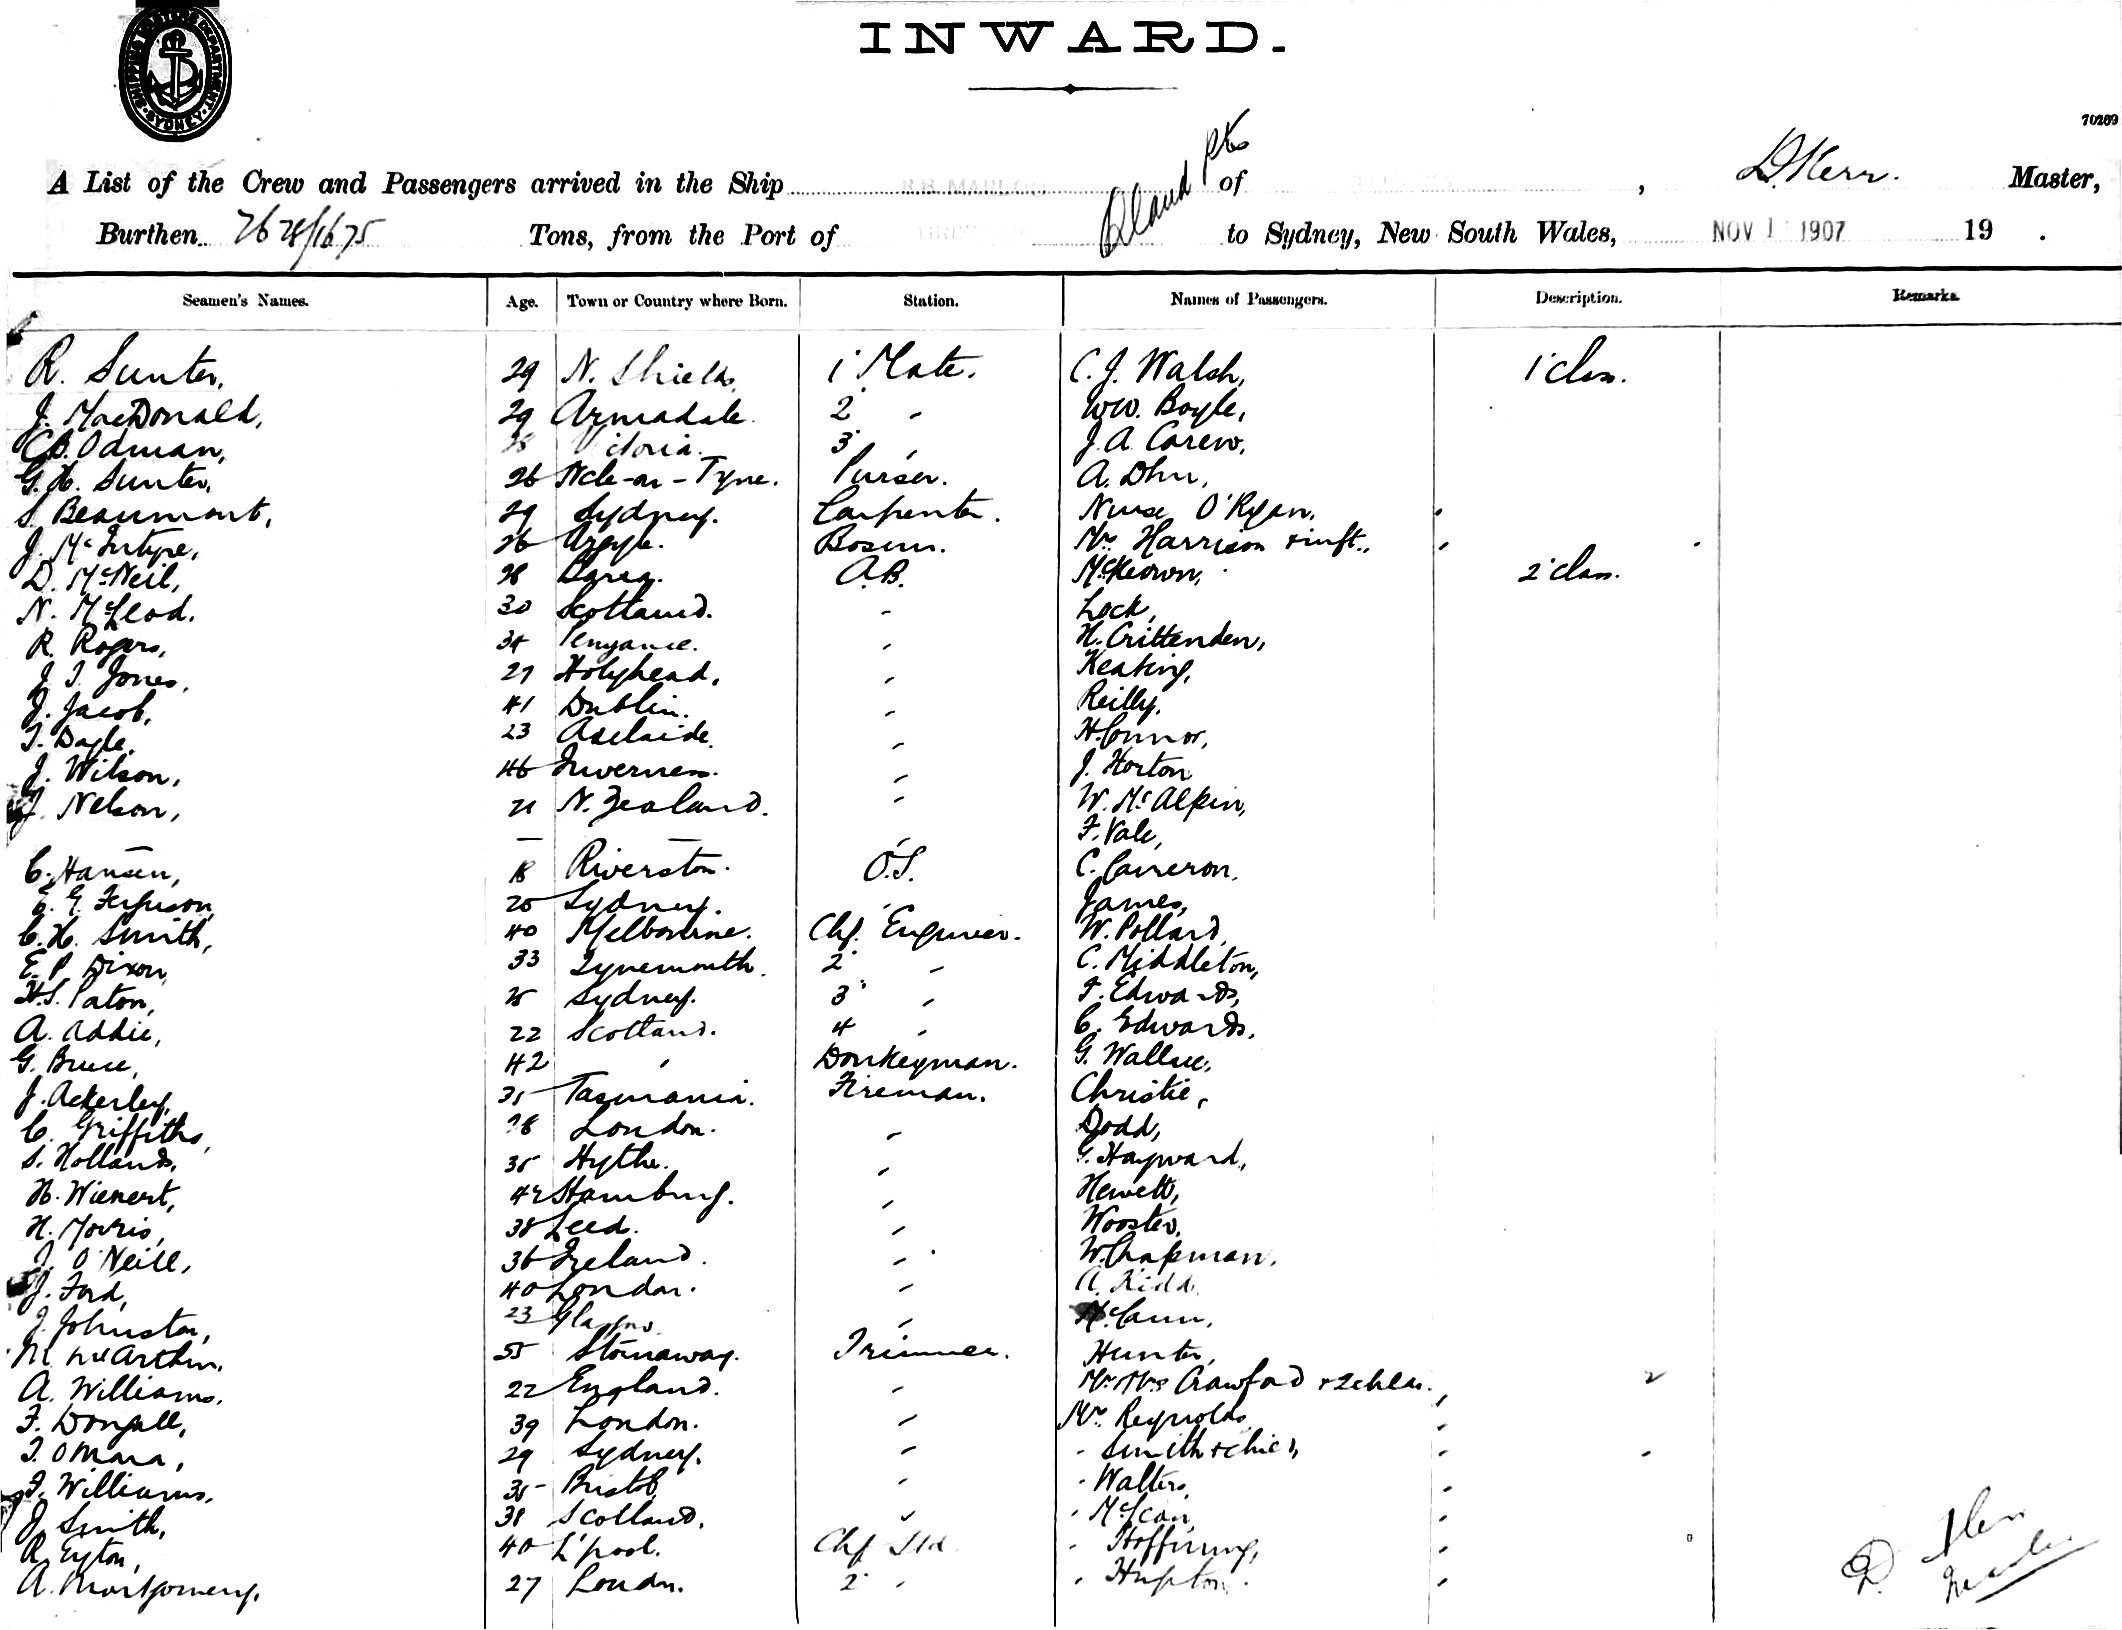 INWARD.
SHIPPING MASTERS DEPARTMENT SYDNEY
70269
A List of the Crew and Passengers arrived in the Ship of , D. Kerr. Master,
Burthen 2628/1675 Tons, from the Port of to Sydney, New South Wales, NOV 1 1907 19 .
Seamen's Names. Age. Town or Country where Born. Station. Names of Passengers. Description. Remarks.
R. Sunter, 29 N. Shields. 1 Mate. C. J. Walsh, 1 class.
J. MacDonald, 29 Armadale. 2 " W.W. Boyle,
C.B. Odman, 3 " J. A. Carew,
G. H. Sunter, 26 Ncle-on-Tyne. Purser. A.
S. Beaumont, 29 Sydney. Carpenter. Nurse O'Ryan, "
J. McIntyre, 26 Argyle. Bosun. Mrs Harrison & inft., " "
D. McNeil, 28 A.B. McKeown, 2 class.
N. McLeod. 30 Scotland. " Lock,
R. Rogers, 34 Penzance. " H. Crittenden,
J. I. Jones, 27 Holyhead, " Keating,
J. Jacob, 41 Dublin. " Reilly,
T. Dagle, 23 Adelaide. " H. Connor,
J. Wilson, 46 Inverness. " J. Horton
J. Nelson, 21 N. Zealand. " W. McAlpin,
— — — " F. Vale,
C. Hansen, 18 Riverston. O.S. C. Cameron.
E. G. Ferguson, 20 Sydney. " James,
C. H. Smith, 40 Melbourne. Chf. Engineer. W. Pollard,
E. P. Dixon, 33 Tynemouth. 2 " C. Middleton,
H.S. Paton, 25 Sydney. 3 " F. Edwards,
A. Addie, 22 Scotland. 4 " C. Edwards,
G. Bruce, 42 " Donkeyman. G. Wallace,
J. Ackerley, 35 Tasmania. Fireman. Christie,
C. Griffiths, 28 London. " Dodd,
S. Hollands, 35 Hythe. " G. Hayward,
H. Wienert, 42 Hamburg. " Hewett,
H. Morris, 38 Leed. " Wooster,
J. O'Neill, 36 Ireland. " W. Chapman,
J. Ford, 40 London. " A. Kidd
J. Johnston, 23 Glasgow. " McCann,
M. McArthur, 55 Stornaway. Trimmer. Hunter,
A. Williams. 22 England. " Mr. Mrs Crawford & 2 chldn. "
F. Dougall, 39 London. " Mrs. Reynolds "
T. O'Mara, 29 Sydney. " " Smith & child, " "
F. Williams, 35 Bristol " " Walters, "
J. Smith, 38 Scotland. " " McLean, "
R. Eyton, 40 L'pool. Chf Std. " Hoffnung, "
A. Montgomery. 27 London. 2 " " Hupton. "
D. Kerr
Master